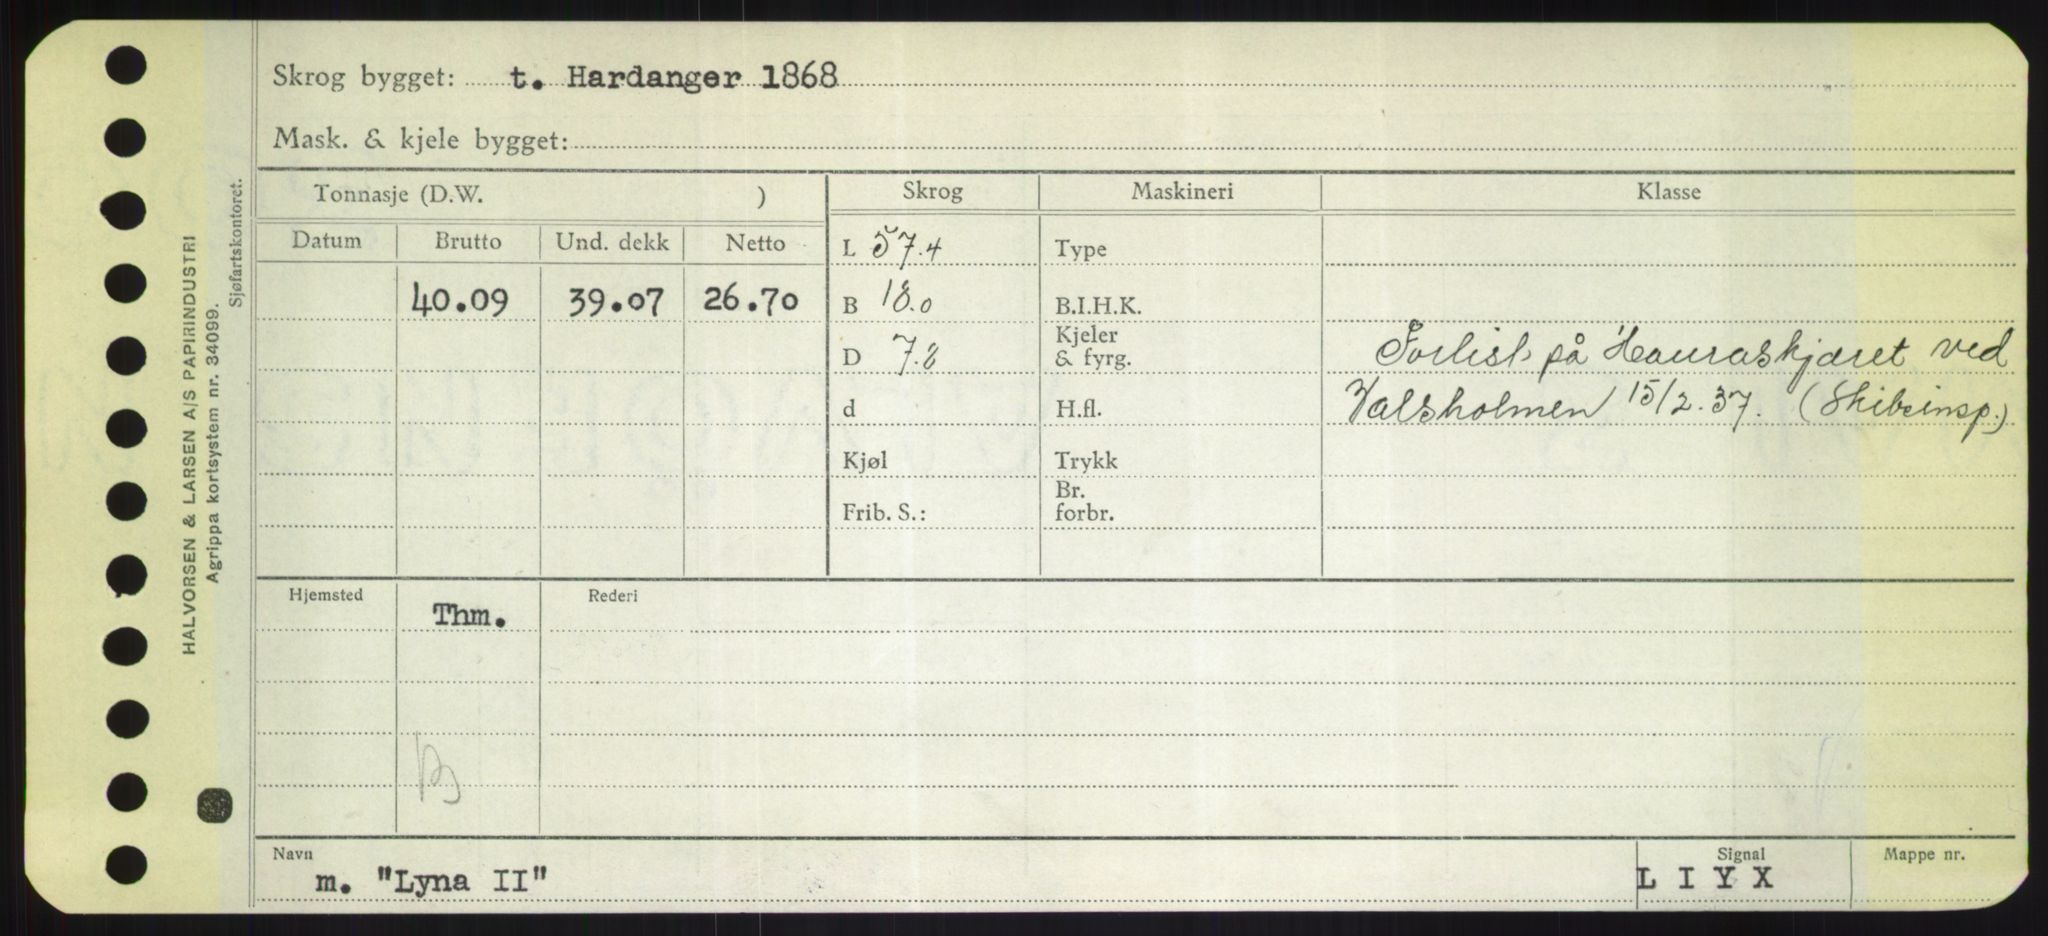 Skrog bygget: t. Hardanger 1868
Mask. & kjele bygget:
HALVORSEN & LARSEN A/S PAPIRINDUSTRI
Agrippa kortsystem nr. 34099.
Sjøfartskontoret.
Tonnasje (D.W. ) Skrog Maskineri Klasse
Datum Brutto Und. dekk Netto L 57.4 Type
40.09 39.07 26.70 B 18.0 B.I.H.K.
D 7.8 Kjeler & fyrg. Forlist på Hauraskjæret ved
d H.fl. Valsholmen 15/2.37. (Skibsinsp.)
Kjøl Trykk
Frib. S.: Br. forbr.
Hjemsted Thm. Rederi
B
Navn Signal Mappe nr.
m. "Lyna II" L I Y X